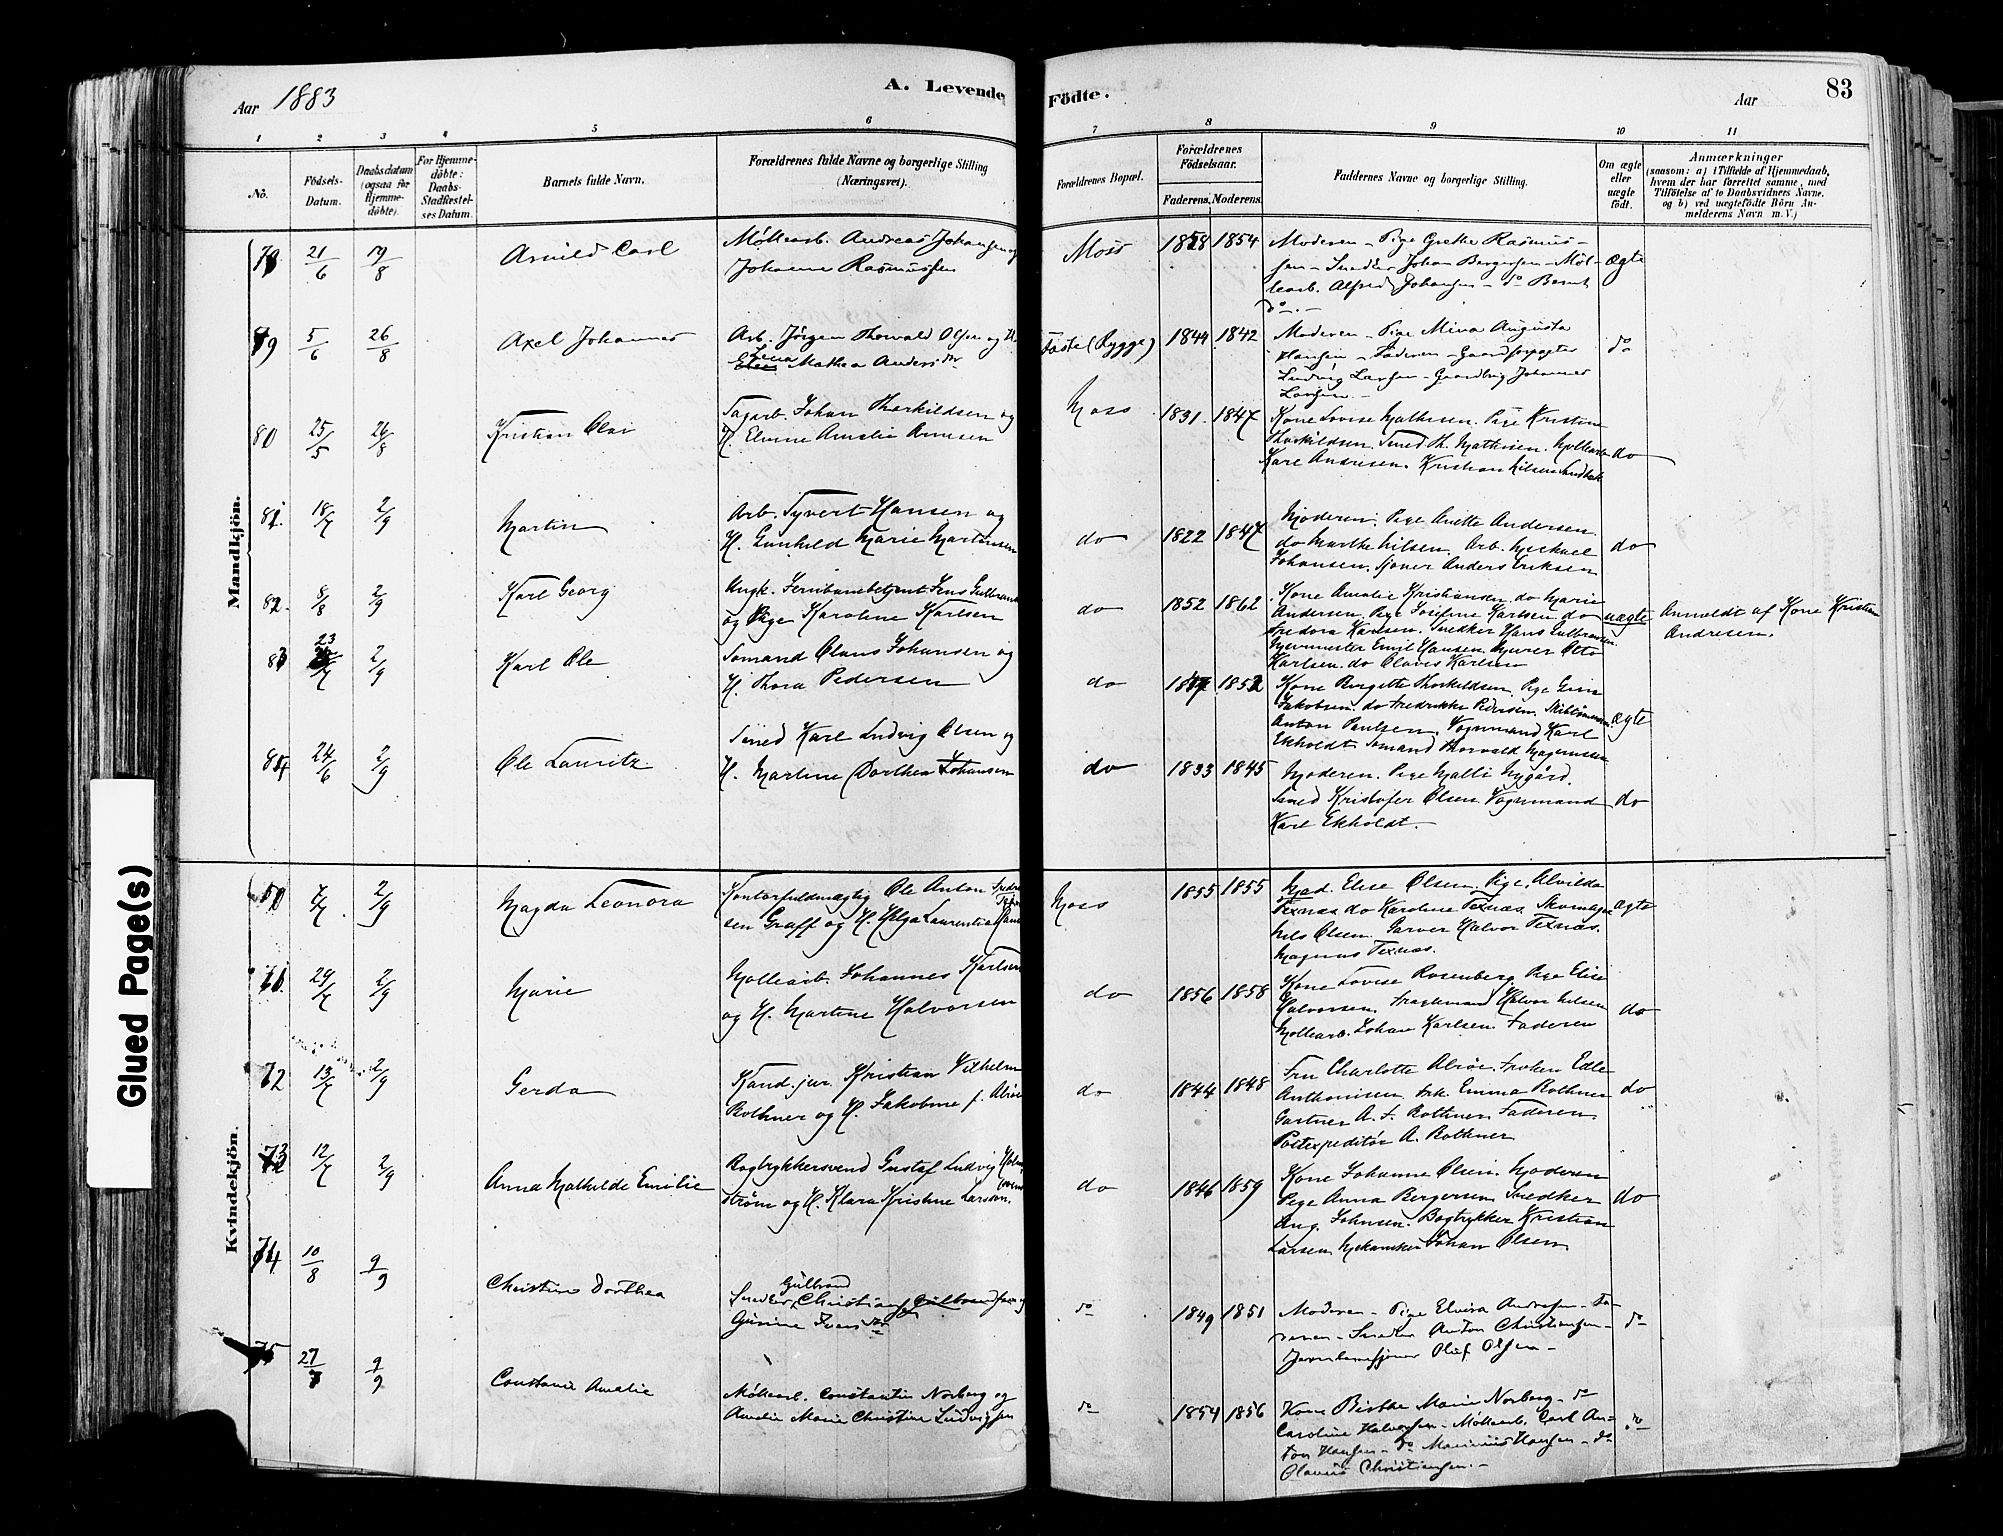 Aar 1883
A. Levende Födte.
Aar
83
1 2 3 4 5 6 7 8 9 10 11
No.
Födsels-Datum.
Daabsdatum (ogsaa for Hjemme-döbte).
For Hjemme-döbte: Daabs-Stadfæstel-ses Datum.
Barnets fulde Navn.
Forældrenes fulde Navne og borgerlige Stilling (Næringsvei).
Forældrenes Bopæl.
Forældrenes Födselsaar.
Faderens. Moderens.
Faddernes Navne og borgerlige Stilling.
Om ægte eller uægte födt.
Anmærkninger (saasom: a) i Tilfælde af Hjemmedaab, hvem der har forrettet samme, med Tilföielse af to Daabsvidners Navne. og b) ved uægtefödte Börn Anmelderens Navn m. V.)
Mandkjön.
78 21/6 19/8 Arvild Carl
Møllearb. Andreas Johansen og
Johanne Rasmussen
Moss 1858 1854
Moderen - Pige Grethe Rasmus-
sen - Snedker Johan Bergersen - Møl-
learb. Alfred Johansen - do Bernt
do -
ægte
79 5/6 26/8 Axel Johannes
Arb. Jørgen Thorvald Olsen og H.
Lena Mathea Andersdr
(Rygge) 1844 1842
Moderen - Pige Mina Augusta
Hansen - Faderen - Gaardforpagter
Ludvig Larsen - Gaardbrg Johannes
Larsen -
do
80 25/5 26/8 Kristian Olai
Sagarb. Johan Thorkildsen og
H. Elvine Amalie Arnesen
Moss 1831 1847
Kone Lovise Mathisen. Pige Kristine
Thorkildsen. Smed Th. Mathisen. Møllearb
Kare Andresen. Kristian Nilsen Sandbæk
do
81. 18/7 2/9 Martin
Arb. Syvert Hansen og
H. Gunhild Marie Martinsen
do 1822 1847
Moderen. Pige Anette Andersen
do Marthe Nilsen. Arb. Mickael
Johansen. Sjover Anders Eriksen
do
82. 8/8 2/9 Karl Georg
Ungk. Jernbanebetjent Jens Gulbrands
og Pige Karoline Karlsen
do 1852 1862
Kone Amalie Kristiansen. do Marie
Andersen. Pige Josefine Karlsen do
Fredora Karlsen. Snedker Hans Gulbransen
Murmester Emil Hansen. Murer Otto
Karlsen. do Olaves Karlsen
uægte
Anmeldt af Kone Kristine
Andresen.
83 23/7 2/9 Karl Ole
Sømand Olaus Johansen og
H. Thora Pedersen
do 1847 1852
Kone Birgitte Thorkildsen. Pige Gina
Jakobsen. do Fredrikke Pedersen. Skibstømmerm.
Anton Paulsen. Vognmand Karl
Ekholdt. Sømand Thorvald Magnussen
ægte
84 24/6 2/9 Ole Lauritz
Smed Karl Ludvig Olsen og
H. Martine Dorthea Johansen
do 1833 1845
Moderen. Pige Malli Nygård.
Smed Kristofer Olsen. Vognmand
Karl Ekholdt.
do
Kvindekjön.
70 7/7 2/9 Magda Leonora
Kontorfuldmægtig Ole Anton
sen Graff og H. Helga Laurentia
Moss 1855 1855
Mad. Elise Olsen. Pige Alvilda
Texnæs do Karoline Texnæs. Skomager
Nils Olsen. Garver Halvor Texnæs.
Magnus Texnæs.
ægte
71. 29/7 2/9 Marie
Møllearb. Johannes Karlsen
og H. Martine Halvorsen
do 1856 1858
Kone Lovise Rosenberg. Pige Elise
Halvorsen. Fragtemand Halvor Nilsen
Møllearb. Johan Karlsen. Faderen
do
72 13/7 2/9 Gerda
Kand. jur. Kristian Vilhelm
Rothner og H. Jakobine f. Alrøe
do 1844 1848
Fru Charlotte Alrøe. Frøken Edle
Anthonisen. Frk. Emma Rothner
Gartner A. F. Rothner. Faderen
Postexpeditør A. Rothner
do
73 12/7 2/9 Anna Mathilde Emilie
Bogtrykkersvend Gustaf Ludvig Holm-
strøm og H. Klara Kristine Larsson.
do 1846 1859
Kone Johanne Olsen. Moderen
Pige Anna Bergersen. Snedker
Aug. Johnsen. Bogtrykker Kristian
Larsen. Mekaniker Johan Olsen
do
74 10/8 9/9 Christine Dorthea
Snedker Gulbrand Christiansen og
Gusine Iversdr
do 1849 1851
Moderen - Pige Elvira Andresen - Fa-
deren - Snedker Anton Christiansen -
Oluf Olsen -
do
75 27/7 9/9 Constance Amalie
Møllearb. Constantin Norberg og
Amalie Marie Christine Ludvigsen
do 1854 1856
Kone Birthe Marie Norberg - do
Caroline Halvorsen - Møllearb. Carl An-
ton Hansen - do Marinius Hansen - do
Olavus Christiansen. -
do
Glued Page(s)